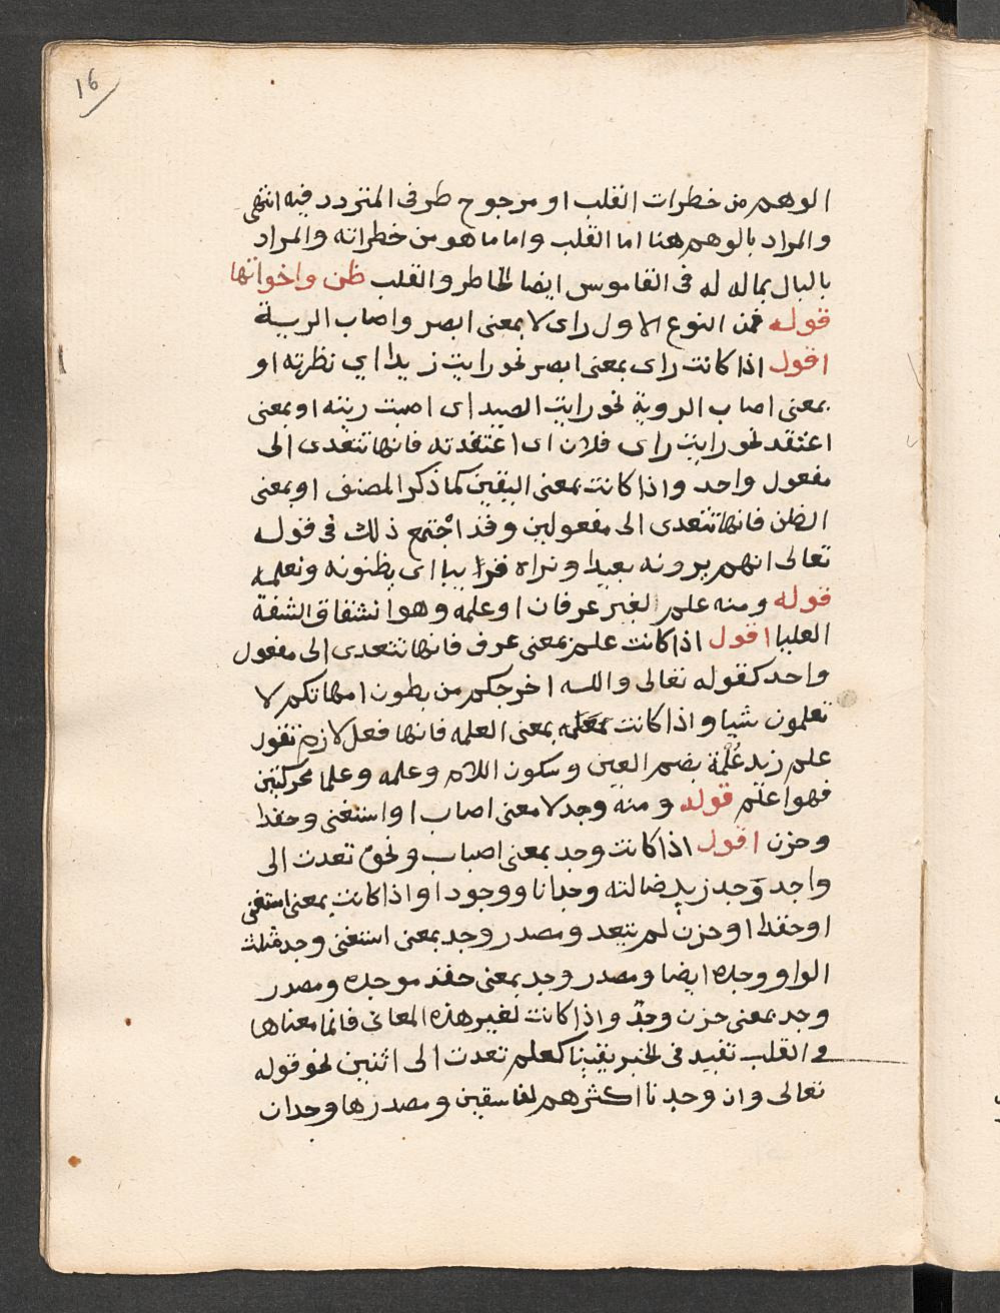 16
الوهم من خطرات القلب او مرجوح طرفى المتردد فيه انتهى
والمراد بالوهم هنا اما القلب واما ما هو من خطراته والمراد
بالبال بما له له فى القاموس ايضا الخاطر والقلب ظن واخواتها
قوله فمن النوع الاول راى لا بمعنى ابصر واصاب الرية
اقول اذا كانت راى بمعنى ابصر نحو رايت زيدا اي نظرته او
بمعنى اصاب الروية نحو رايت الصيد اى اصبت ريته او بمعنى
اعتقد نحو رايت راى فلان اى اعتقدته فانها تتعدى الى
مفعول واحد واذا كانت بمعنى اليقين كما ذكر المصنف او بمعنى
الظن فانها تتعدى الى مفعولين وقد اجتمع ذلك فى قوله
تعالى انهم يرونه بعيدا ونراه قريبا اى يظنونه ونعلمه
قوله ومنه علم لغير عرفان او علمه وهو انشقاق الشفة
العليا اقول اذا كانت علم بمعنى عرف فانها تتعدى الى مفعول
واحد كقوله تعالى والله اخرجكم من بطون امهاتكم لا
تعلمون شيا واذا كانت بمعنى العلمه فانها فعل لازم تقول
علم زيد عُلْمة بضم العين وسكون اللام وعلمه وعلما محركتين
فهو اعلم قوله ومنه وجد لا معنى اصاب او استغنى وحقدا
وحزن اقول اذا كانت وجد بمعنى اصاب ونحو تعدت الى
واحد وَجد زيد ضالته وجدانا ووجودا واذا كانت بمعنى استغنى
او حقد او حزن لم تتعد ومصدر وجد بمعنى استغنى وجد مثلث
الواو وجده ايضا ومصدر وجد بمعنى حقد موجده ومصدر
وجد بمعنى حزن وجدٌ واذا كانت لغير هذه المعانى فانما معناها
فى القلب تفيد فى الخبر يقينا كعلم تعدت الى اثنين نحو قوله
تعالى وان وجدنا اكثرهم لفاسقين ومصدرها وجدان